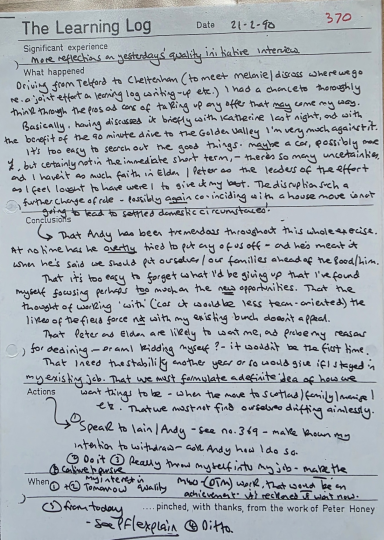 370
The Learning Log Date 21-2-90
Significant experience
More reflections on yesterdays' quality initiative interview
What happened
Driving from Telford to Cheltenham (to meet melanie/discuss where we go
re-a joint effort on learning log writing-up etc.) I had a chance to thoroughly
think through the pros ad cons of taking up any offer that may come my way.
Basically, having discussed it briefly with Katherine last night, and with
the benefit of the 90 minute drive to the Golden Valley I'm very much against it.
It's too easy to search out the good things - maybe a car, possibly more
£, but certainly not in the immediate short term, - there's so many uncertainties
and I haven't as much faith in Elden / Peter as the leaders of the effort
as I feel I ought to have were I to give it my best. The disruption such a
further change of role - possibly again co-inciding with a house move is not
going to lead to settled domestic circumstances.
Conclusions
That Andy has been tremendous throughout this whole exercise.
At no time has he overtly tried to put any of us off - and he's meant it
when he's said we should put ourselves/our families ahead of the good/him.
That it's too easy to forget what I'd be giving up that I've found
myself focusing perhaps too much on the new opportunities. That the
thought of working 'with' (cos it would be less team-oriented) the
likes of the field force not with my existing bunch doesn't appeal.
That Peter and Elden are likely to want me, and probe my reasons
for declining - or am I kidding myself? - it wouldn't be the first time.
That I need the stability another year or so would give if I stayed in
my existing job. That we must formulate a definite idea of how we
Actions want things to be - when the move to Scotland/family/
etc. That we must not find ourselves drifting aimlessly.
① Speak to Iain/Andy - see no. 369 - make known my
intention to withdraw - ask Andy how I do so.
② Do it ③ Really throw myself into my job - make the
④ Continue to pursue my interest in quality
MSO (DTM) work. That would be an
achievement
When ①+② Tomorrow
③ from today .... pinched, with thanks, from the work of Peter Honey
- see
④ Ditto.